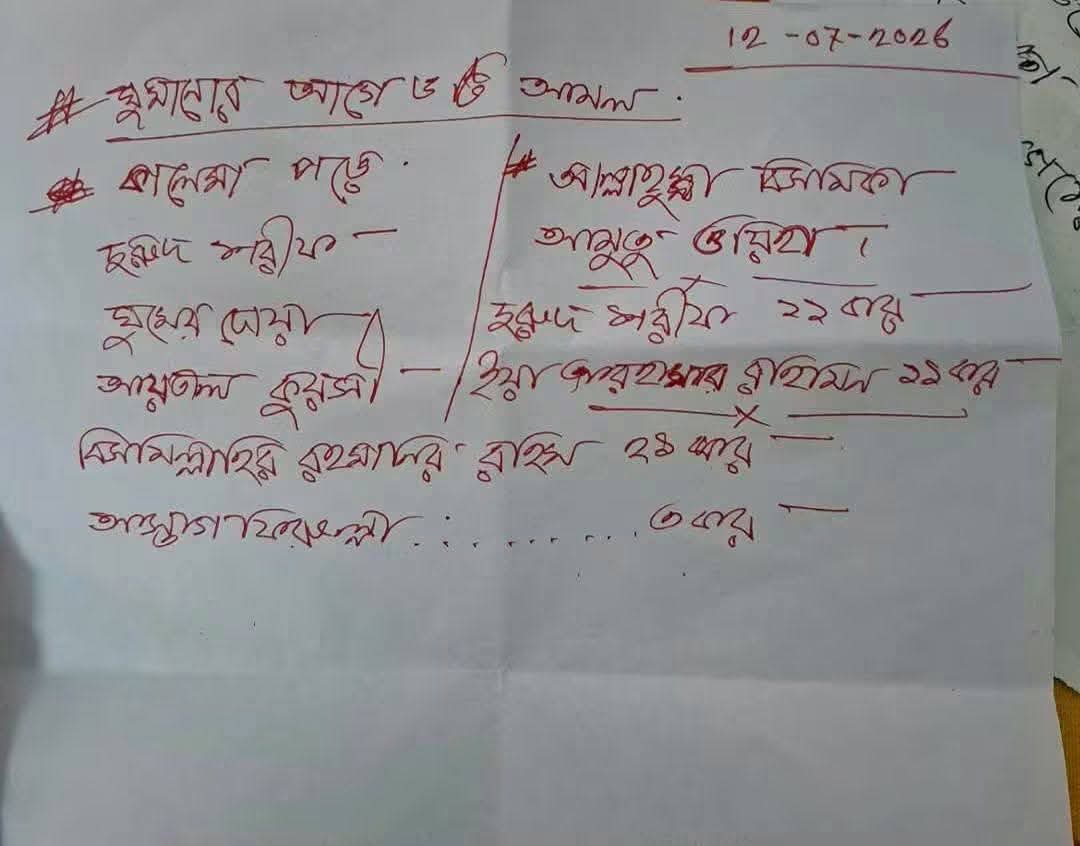 12-07-2026
# ঘুমানোর আগে ৬ টি আমল.
কালেমা পড়ে.
দুরুদ শরীফ -
ঘুমের দোয়া -
আয়তাল কুরসী -
# আল্লাহুম্মা বিসমিকা
আমুতু ওয়াহিয়া।
দুরুদ শরীফ ১১ বার -
ইয়া রাহিমিন ১১ বার -
বিসমিল্লাহির রহমানির রাহিম ২১ বার -
আস্তাগফিরুল্লা.......... ৩ বার -